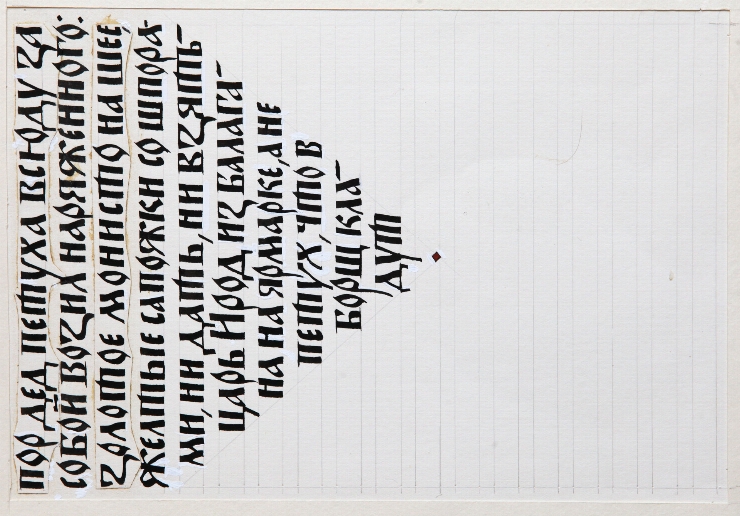 пор дед петуха всюду за
собой возил наряженного:
золотое монисто на шее,
желтые сапожки со шпора-
ми, ни дать, ни взять -
царь Ирод из балага-
на на ярмарке, а не
петух, что в
борщ кла-
дут